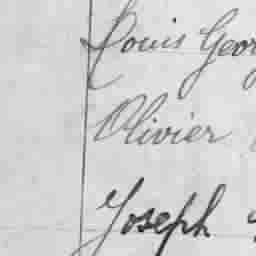 Louis Geor
Olivier
Joseph